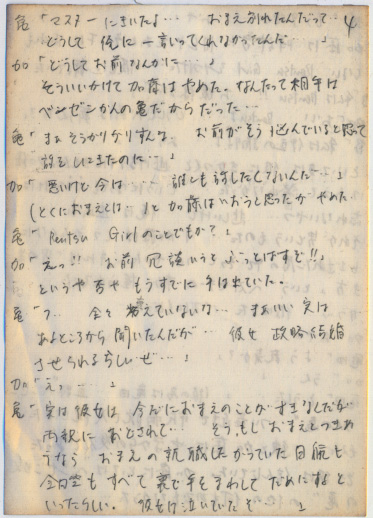 4
亀「マスターにきいたよ… おまえ別れたんだって…
どうして俺に一言いってくれなかったんだ… 」
加「どうしてお前なんかに… 」
そういいかけて加藤はやめた。なんたって相手は
ペンゼンかんの亀だからだった…
亀「まぁそうかりかりすんな。 お前がそう悩んでいると思って
話をしにきたのに…」
加「悪いけど今は 誰とも話したくないんだ…」
(とくにおまえとは…)と加藤はいおうと思ったがやめた
亀「 Girlのことでもか?」
加「えっ!! お前 冗談いうと ぶっとばすぞ!!」
というや否や もうすでに手は出ていた。
亀「フ… 全く変えていないな… まぁいい 実は
あるところから聞いたんだが… 彼女 政略結婚
させられるらしいぜ…」
加「えっ… 」
亀「実は彼女は 今だにおまえのことがすきなんだが
両親におどされて… そう、もしおまえとつきあ
うなら おまえの就職したがっていた日航も
全日空も すべて裏で手をまわして だめにすると
いったらしい。 彼女は泣いていたぞ 」